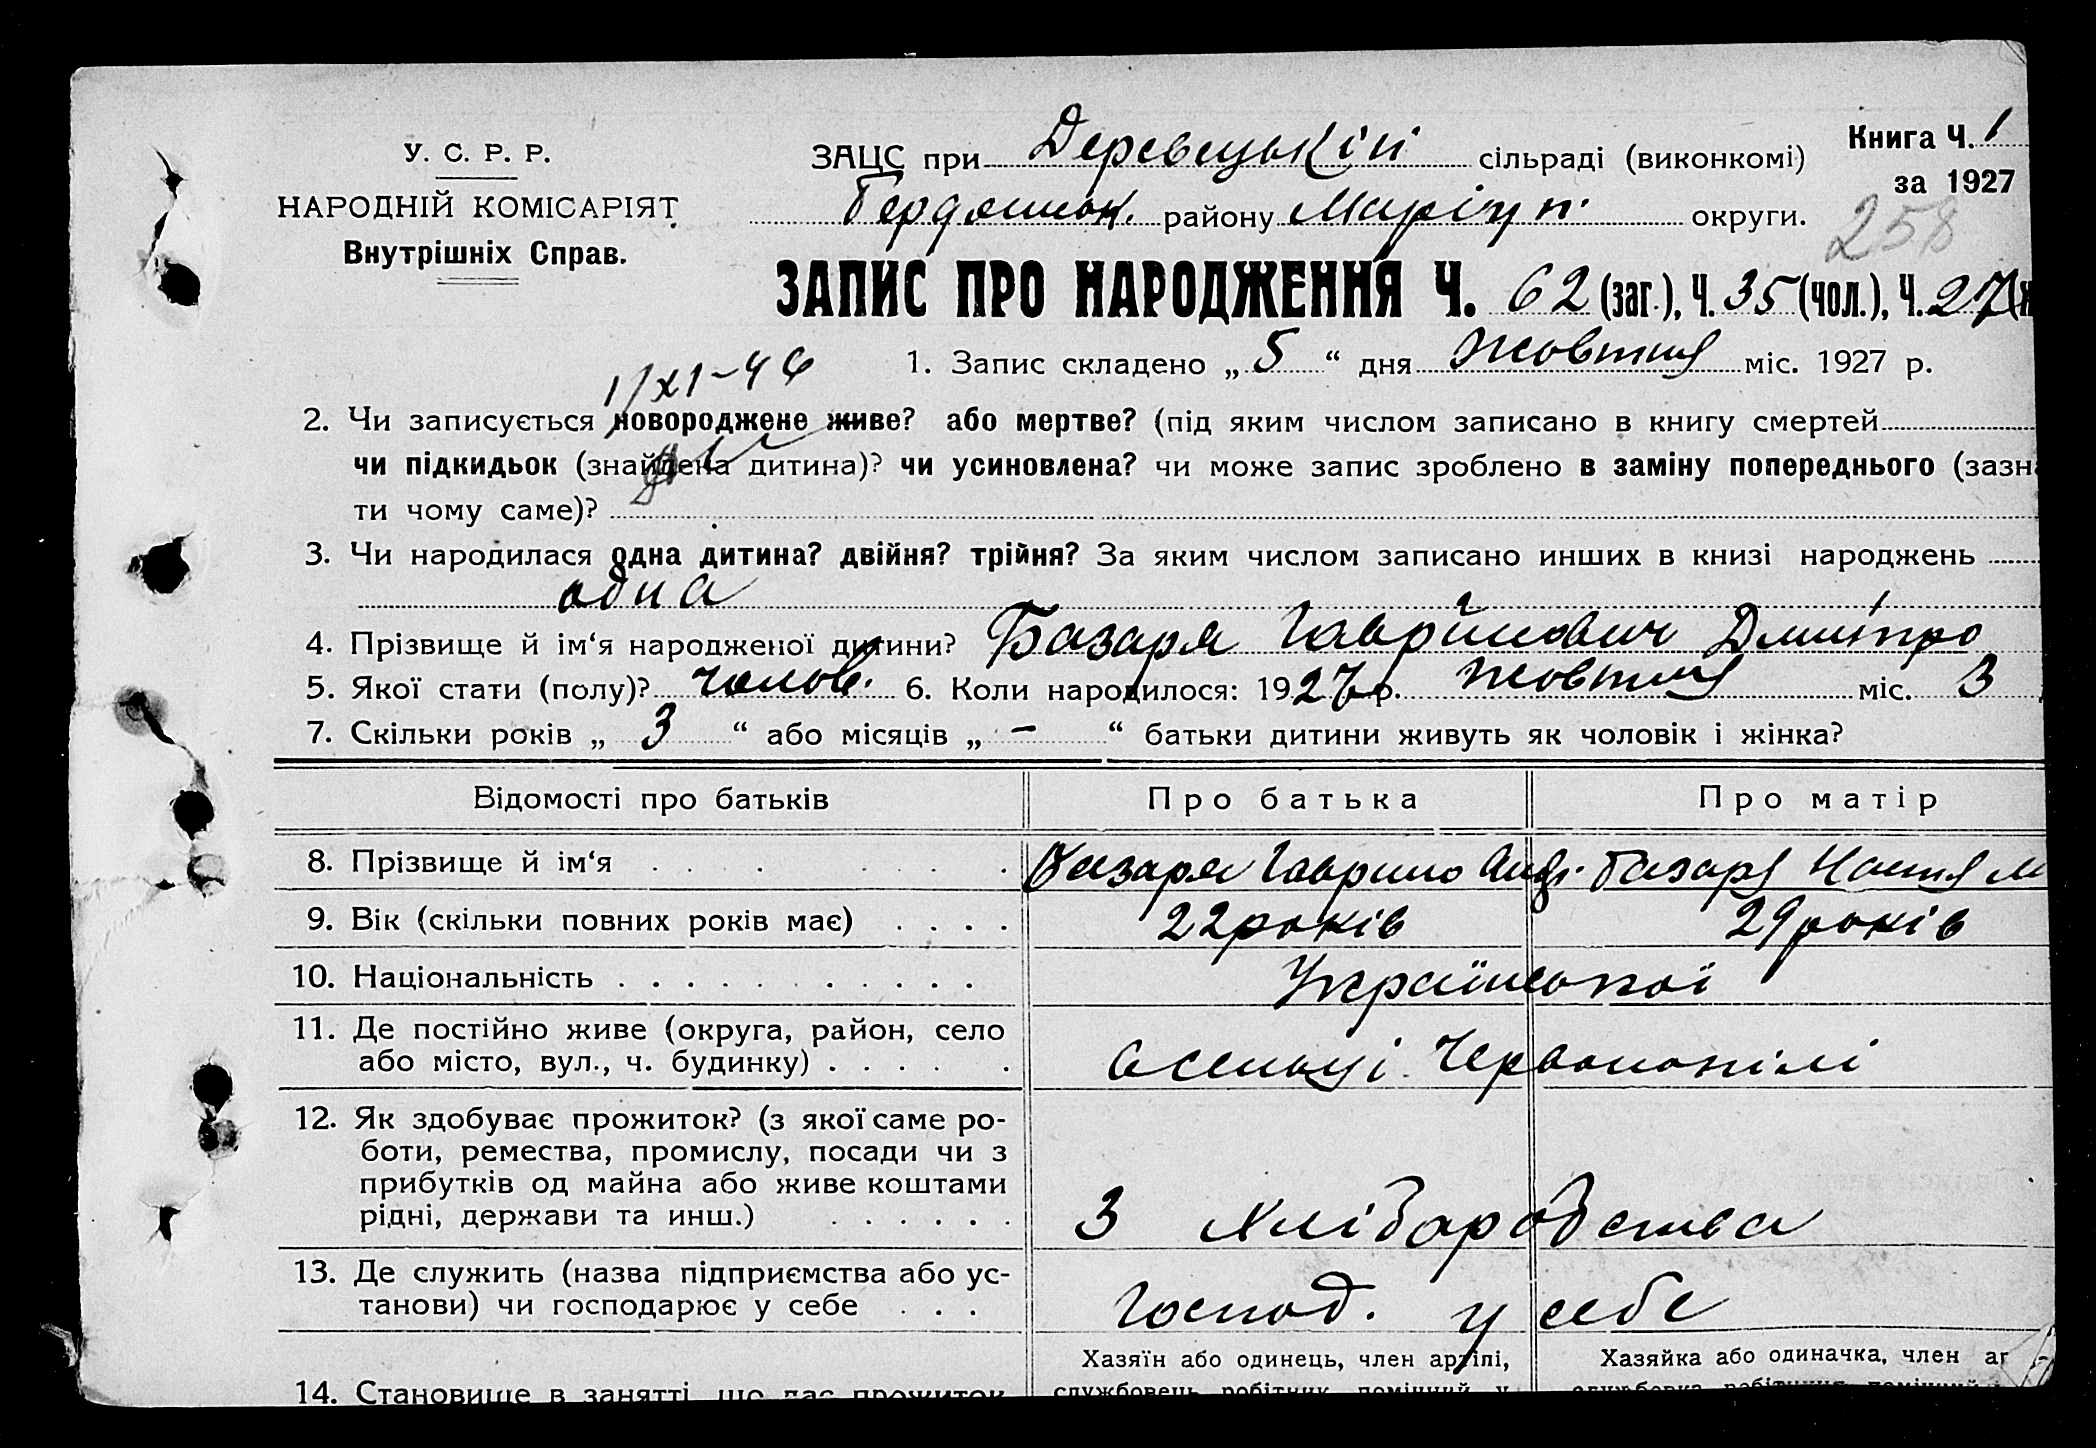 У. С. Р. Р.
НАРОДНІЙ КОМІСАРІЯТ
Внутрішніх Справ.
ЗАЦС при Деревецькій сільраді (виконкомі)
Бердянськ. району Маріуп. округи.
Книга Ч. 1
за 1927
258
ЗАПИС ПРО НАРОДЖЕННЯ Ч. 62 (заг.), Ч. 35 (чол.), Ч. 27 (ж
1. Запис складено „ 5 “ дня Жовтня міс. 1927 р.
1/XI-46
2. Чи записується новороджене живе? або мертве? (під яким числом записано в книгу смертей
чи підкидьок (знайдена дитина)? чи усиновлена? чи може запис зроблено в заміну попереднього (зазн
ти чому саме)?
3. Чи народилася одна дитина? двійня? трійня? За яким числом записано инших в книзі народжень
одна
4. Прізвище й ім‘я народженої дитини? Базаря Гаврилович Дмитро
5. Якої стати (полу)? чолов. 6. Коли народилося: 1927 р. Жовтня міс. 3
7. Скільки років „ 3 “ або місяців „ — “ батьки дитини живуть як чоловік і жінка?
Відомості про батьків Про батька Про матір
8. Прізвище й ім‘я Базаря Гаврило Анд. Базаря Настя М
9. Вік (скільки повних років має) 22 років 29 років
10. Національність Української
11. Де постійно живе (округа, район, село
або місто, вул., ч. будинку) в сельці Червонопілі
12. Як здобуває прожиток? (з якої саме ро-
боти, ремества, промислу, посади чи з
прибутків од майна або живе коштами
рідні, держави та инш.) З хліборобства
13. Де служить (назва підприємства або ус-
танови) чи господарює у себе Господ. у себе
Хазяїн або одинець, член артілі, Хазяйка або одиначка, член ар
14. Становище в занятті, що дає прожиток
службовець, робітник, помічний у